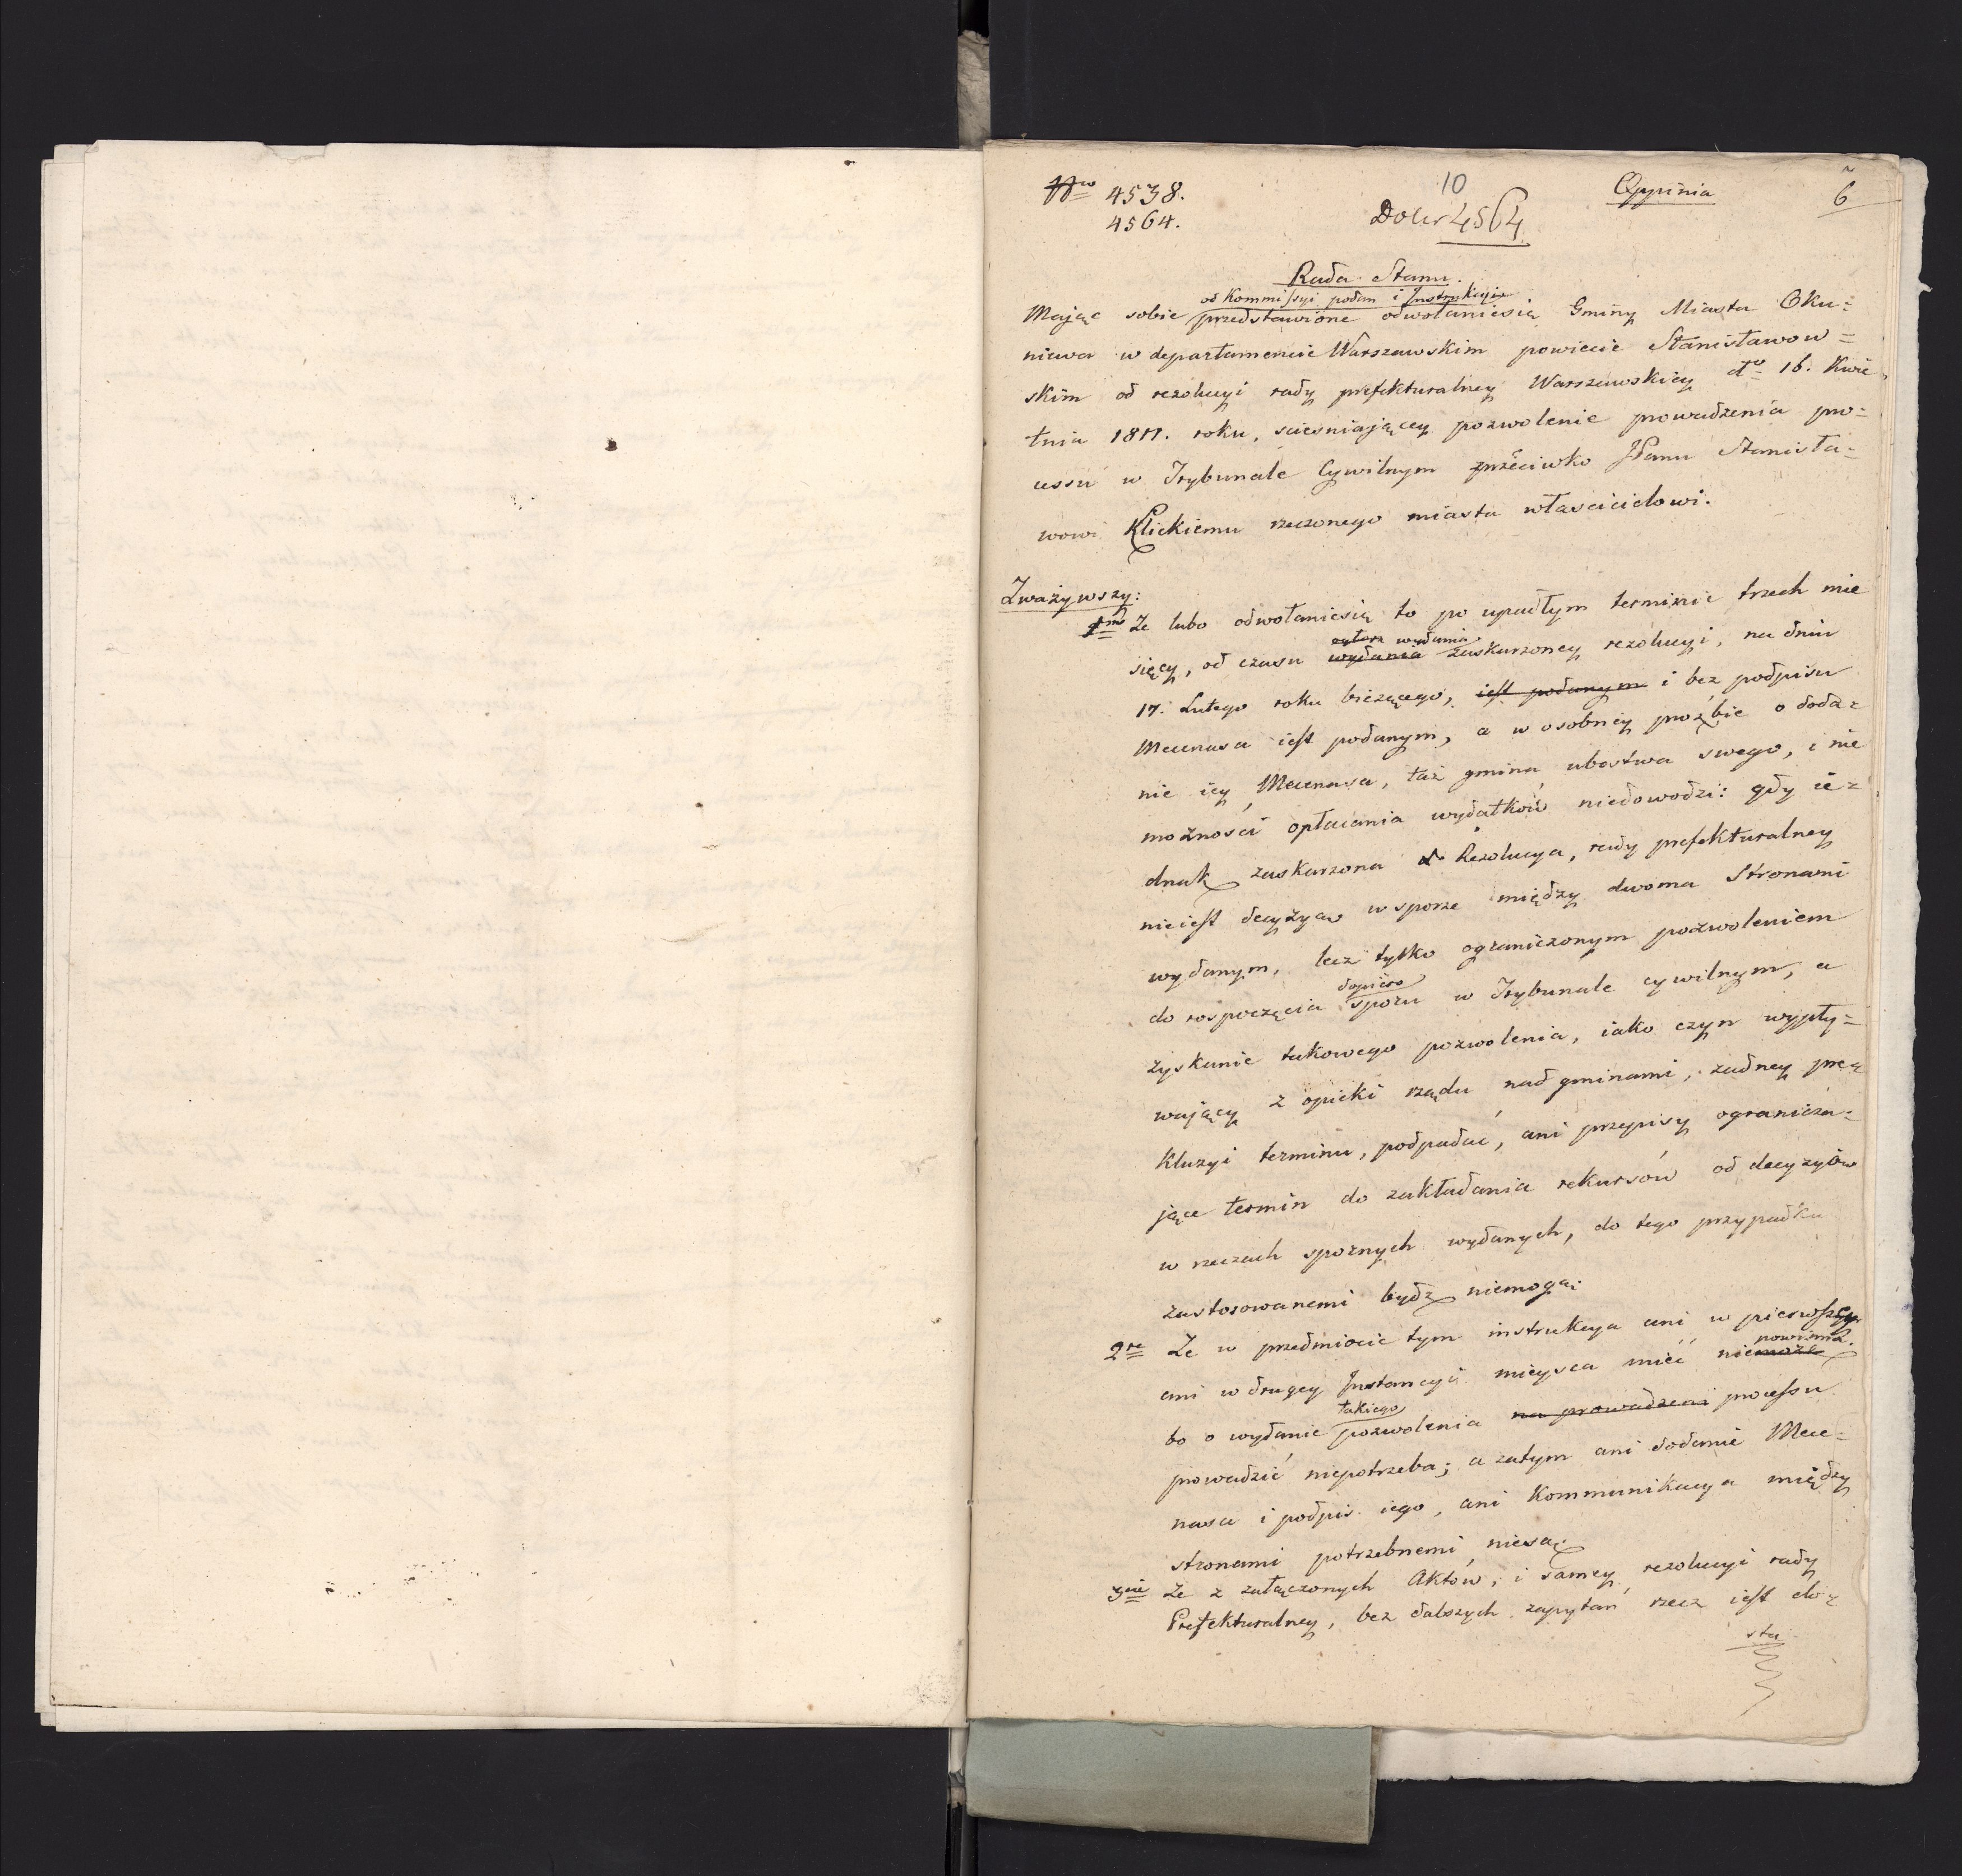 Nro 4538. 10 Oppinia 6
4564. Do Nr 4564
Rada Stanu.
od Kommissyi podan i Instrukcyi
Mając sobie przedstawione odwołaniesią Gminy Miasta Oku=
niewa w departamencie Warszawskim powiecie Stanisławow=
skim od rezolucyi rady prefekturalney Warszawskiey dto 16. Kwie
tnia 1811. roku, scieśniaiącey pozwolenie prowadzenia pro=
cessu w Trybunale Cywilnym przeciwko JPanu Stanisła=
wowi Klickiemu rzeczonego miasta właścicielowi.
Zważywszy:
1mo Że lubo odwołaniesią to po upadłym terminie trzech mie
wydania
sięcy, od czasu wydania zaskarzoney rezolucyi, na dniu
17. Lutego roku bieżącego, iest podanym i bez podpisu
Mecenasa iest podanym, a w osobney prozbie o doda=
nie iey Mecenasa, taż gmina ubostwa swego, i nie
możności opłacania wydatków niedowodzi: gdy ie=
dnak zaskarzona Rezolucya, rady prefekturalney
nieiest decyzyą w sporze między dwoma Stronami
wydanym, lecz tylko ograniczonym pozwoleniem
dopiero
do rospoczęcia sporu w Trybunale cywilnym, a
zyskanie takowego pozwolenia, iako czyn wypły=
waiący z opieki rządu nad gminami, żadney pre=
kluzyi terminu, podpadać, ani przepisy ogranicza=
jące termin do zakładania rekursów od decyzyów
w rzeczach spornych wydanych, do tego przypadku
zastosowanemi bydź niemogą:
2re Że w przedmiocie tym instrukcya ani w pierwszey
powinna
ani w drugiey Instancyi mieysca mieć niemoże
takiego
bo o wydanie pozwolenia na prowadzeni processu
prowadzić niepotrzeba; a zatym ani dodanie Mece=
nasa i podpis iego, ani Kommunikacya między
stronami potrzebnemi niesą.
3cie Że z załączonych Aktów, i samey rezolucyi rady
Prefekturalney, bez dalszych zapytań rzecz iest do=
sta